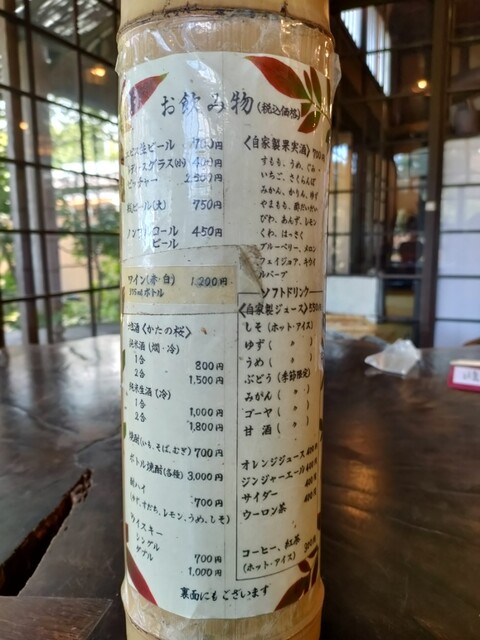 お飲み物(税込価格)
ビスビール
グラス(小)
ピッチャー
ビール(大) 750円
ノンアルコール
ビール 450円
ワイン(赤・白) 1,200円
ボトル
酒〈かたの桜〉
純米酒(燗・冷)
1合 800円
2合 1,500円
純米生酒(冷)
1合 1,000円
2合 1,800円
焼酎(いも、そば、むぎ) 700円
ボトル焼酎(各種) 3,000円
酎ハイ 700円
(ゆず、すだち、レモン、うめ、しそ)
ウイスキー
シングル 700円
ダブル 1,000円
〈自家製果実酒〉700円
すもも、うめ、
いちご、さくらんぼ
みかん、かりん、ゆず
やまもも、
びわ、あんず、レモン
くわ、はっさく
ブルーベリー、メロン
フェイジョア、キウイ
ルバーブ
ソフトドリンク
〈自家製ジュース〉550円
しそ(ホット・アイス)
ゆず( 〃 )
うめ( 〃 )
ぶどう(季節限定)
みかん( 〃 )
ゴーヤ( 〃 )
甘酒( 〃 )
オレンジジュース 400円
ジンジャーエール 400円
サイダー 400円
ウーロン茶 400円
コーヒー、紅茶
(ホット・アイス)
裏面にもございます